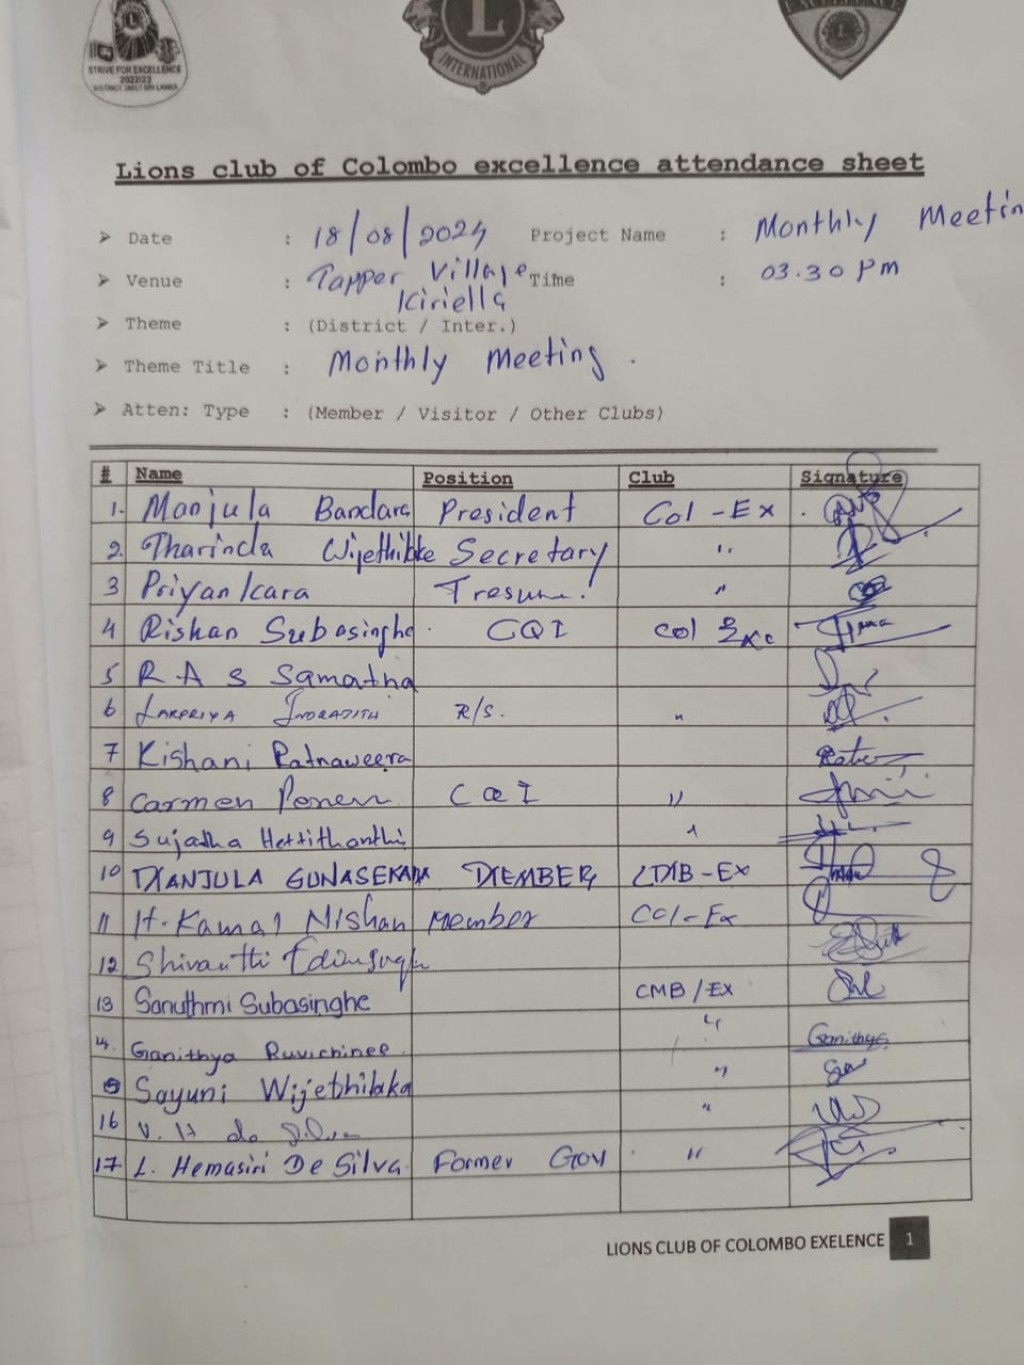 STRIVE FOR EXCELLENCE
2022/23
L
INTERNATIONAL
Lions club of Colombo excellence attendance sheet
➢ Date : 18/08/2024 Project Name : Monthly Meetin
➢ Venue : Tapper Village Time : 03.30 pm
Kiriella
➢ Theme : (District / Inter.)
➢ Theme Title : Monthly Meeting.
➢ Atten: Type : (Member / Visitor / Other Clubs)
# Name Position Club Signature
1. Manjula Bandara President Col-Ex
2. Tharinda Secretary "
3 Priyankara "
4 Rishan Subasinghe CQI Col Exc
5 R A S Samatha
6 LAKPRIYA INDRAJITH R/S. "
7 Kishani Ratnaweera
8 Carmen CQI "
9 Sujatha Hettithanthi "
10 MANJULA GUNASEKARA MEMBER CMB-EX
11 H. Kamal Nishan Member Col-Ex
12 Shivanthi
13 Sanuthmi Subasinghe CMB/EX
14. Ganithya " Ganithya
Sayuni Wijethilaka "
16 V. H de "
17 L. Hemasiri De Silva Former Gov "
LIONS CLUB OF COLOMBO EXELENCE 1